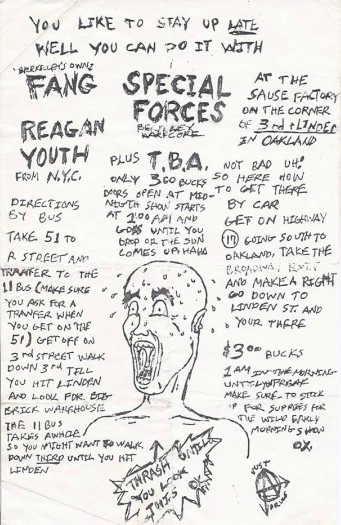 YOU LIKE TO STAY UP LATE
WELL YOU CAN DO IT WITH
BERKELEY'S OWN:
FANG
SPECIAL
FORCES
BERKELEY
HARDCORE
REAGAN
YOUTH
FROM N.Y.C.
PLUS T.B.A.
ONLY 3.00 BUCKS
DOORS OPEN AT MID-
NIGTH SHOW STARTS
AT 1:00 AM AND
GOES UNTIL YOU
DROP OR THE SUN
COMES UP. HAHA
AT THE
SAUSE FACTORY
ON THE CORNER
OF 3rd + LINDEN
IN OAKLAND
NOT BAD UH!
SO HERE HOW
TO GET THERE
BY CAR
GET ON HIGHWAY
17 GOING SOUTH TO
OAKLAND, TAKE THE
BROADWAY EXIT
AND MAKE A RIGHT
GO DOWN TO
LINDEN ST AND
YOUR THERE
$3.00 BUCKS
1 AM IN THE MORNING
UNTIL YOU FREAK
MAKE SURE TO STOCK
UP FOR SUPPLIES FOR
THE WILD EARLY
MORNING SHOW
OX.
DIRECTIONS
BY BUS
TAKE 51 TO
R STREET AND
TRANFER TO THE
11 BUS (MAKE SURE
YOU ASK FOR A
TRANFER WHEN
YOU GET ON THE
51) GET OFF ON
3rd STREET WALK
DOWN 3rd TELL
YOU HIT LINDEN
AND LOOK FOR BIG
BRICK WAREHOUSE
THE 11 BUS
TAKES AWHILE
SO YOU MIGHT WANT TO WALK
DOWN THIRD UNTIL YOU HIT
LINDEN
THRASH UNTILL
YOU LOOK
LIKE THIS